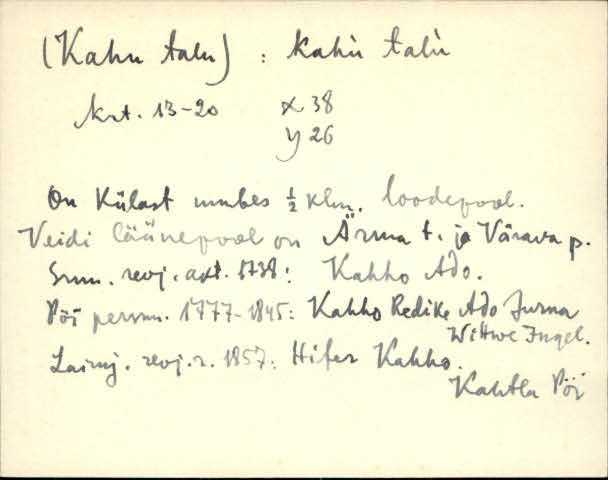 (Kahu talu) : kahù talù
krt. 13-20 x 38
y 26
On Külast umbes ½ klm. loodepool.
Veidi läänepool on Ärma t. ja Värava p.
revj. akt. 1738: Kahho Ado.
Pöi persnn. 1777-1845: Kahho Redike Ado Jurna
Wittwe Ingel.
Laimj. revj. r. 1857: Hifer Kahho.
Kahtla Pöi